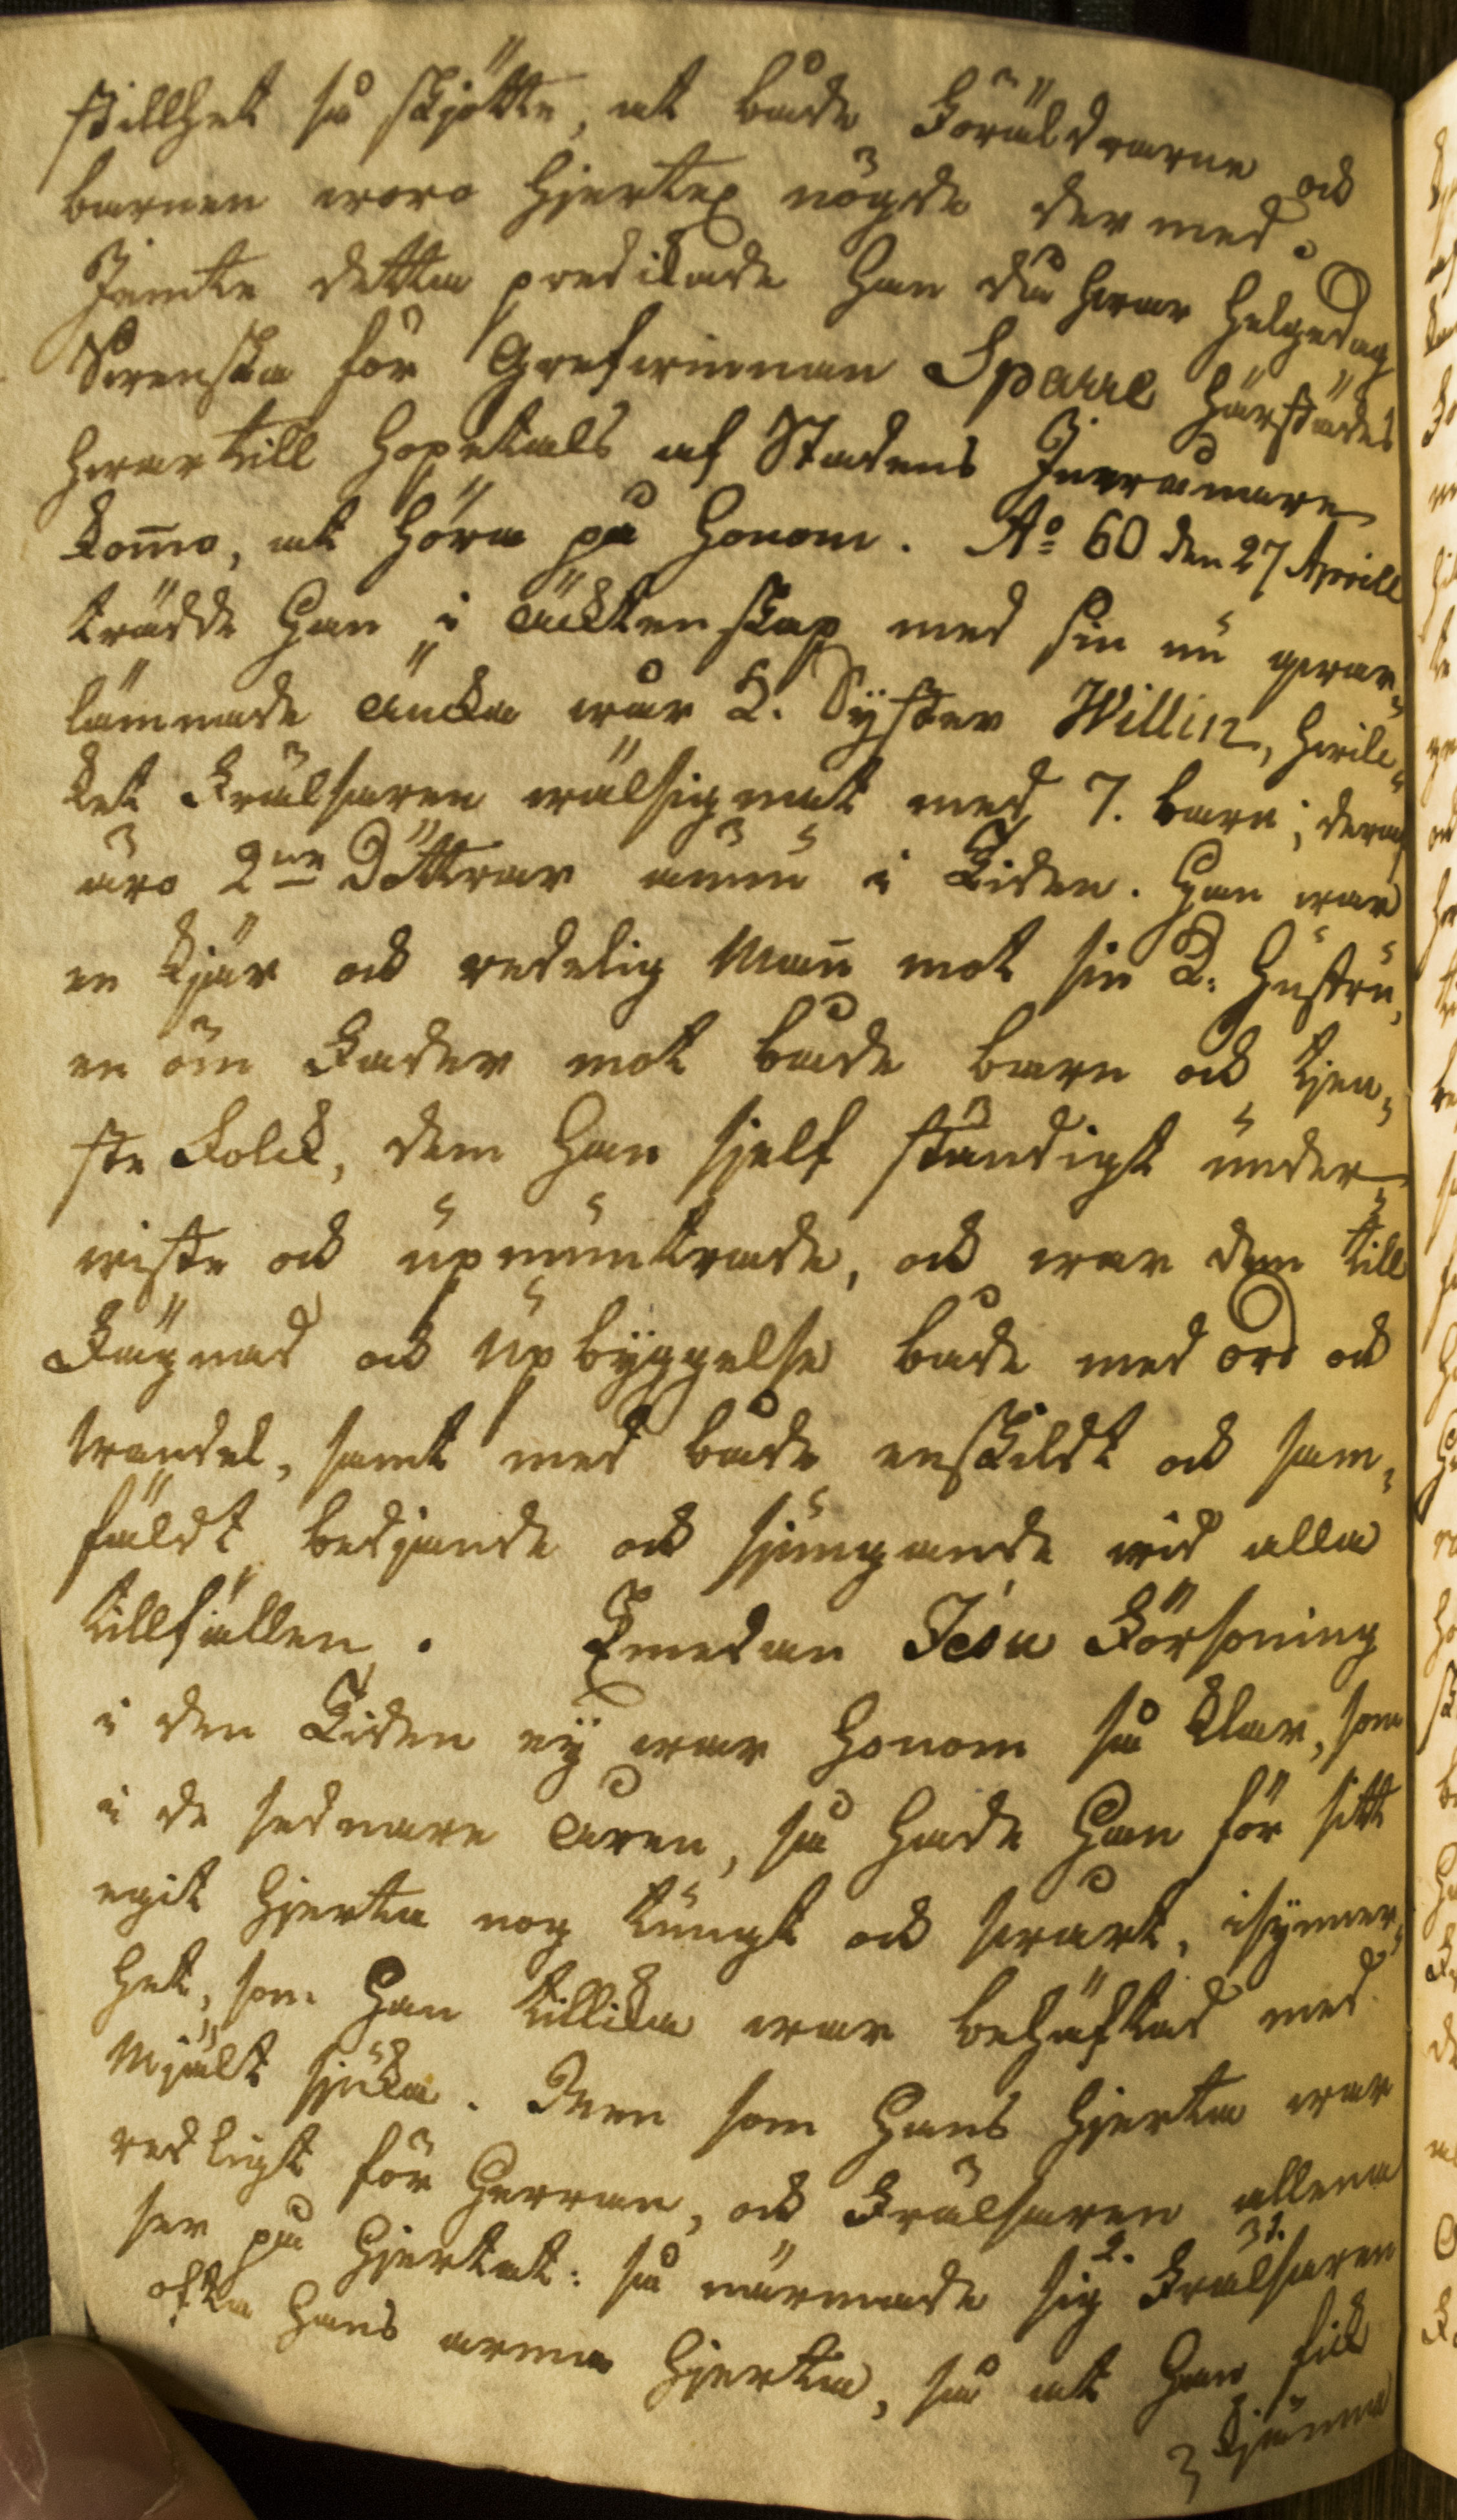 stillhet så skjötte, at både Föräldrarne ock
barnen woro hjertel. nögde der med.
Jemte detta predikade Han då hwar helgedag
Swenska för Grefwinnan Sparre härstädes
hwartill hopetals af Stadens Inwånare
kom̄o, at höra på Honom. A:o 60 den 27 Aprill
trädde Han i äcktenskap med sin nu qwar-
lämnade äncka wår L. Syster Willin, hwil-
ket Frälsaren wälsignat med 7. barn; deraf
äro 2ne Döttrar ännu i Tiden. Han war
en kjär ock redelig Man̄ mot sin L. Hustru,
en öm Fader mot både barn ock tjen-
ste Folck, dem Han sjelf ständigt under-
wiste ock upmuntrade, ock war dem till
Fägnad ock upbyggelse både med ord ock
wandel, samt med både enskildt ock sam-
fäldt bedjande ock sjungande wid alla
tillfällen. Emedan Jesu Försoning
i den Tiden ej war Honom så klar, som
i de sednare åren, så hade Han för sitt
egit hjerta nog tungt ock swårt, isynner-
het, som Han tillika war behäftad med
Mjält sjuka. Men som Hans hjerta war
redligt för Herran, ock Frälsaren allena
ser på hjertat: så närmade sig 2. Frälsaren 31.
ofta Hans arma hjerta, så at Han fick
kjänna